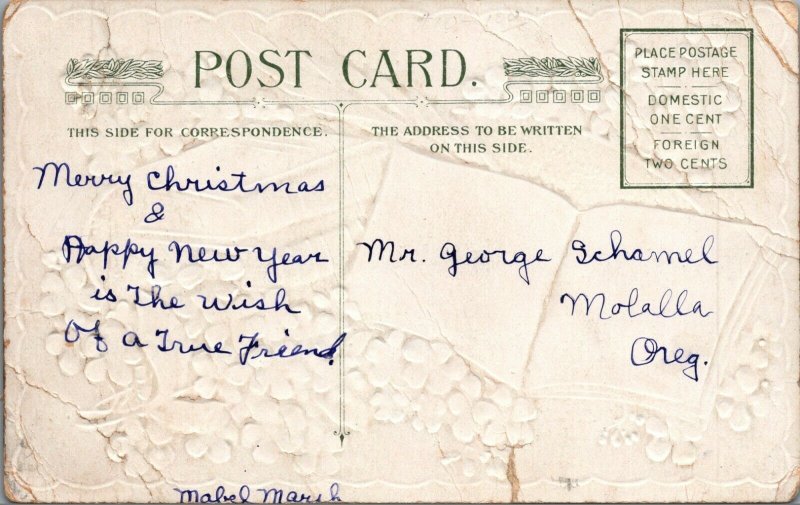 POST CARD.
PLACE POSTAGE
STAMP HERE
DOMESTIC
ONE CENT
FOREIGN
TWO CENTS
THIS SIDE FOR CORRESPONDENCE.
THE ADDRESS TO BE WRITTEN
ON THIS SIDE.
Merry Christmas
&
Happy New Year
is The Wish
Of a True Friend.
Mabel Marsh
Mr. George Schamel
Molalla
Oreg.